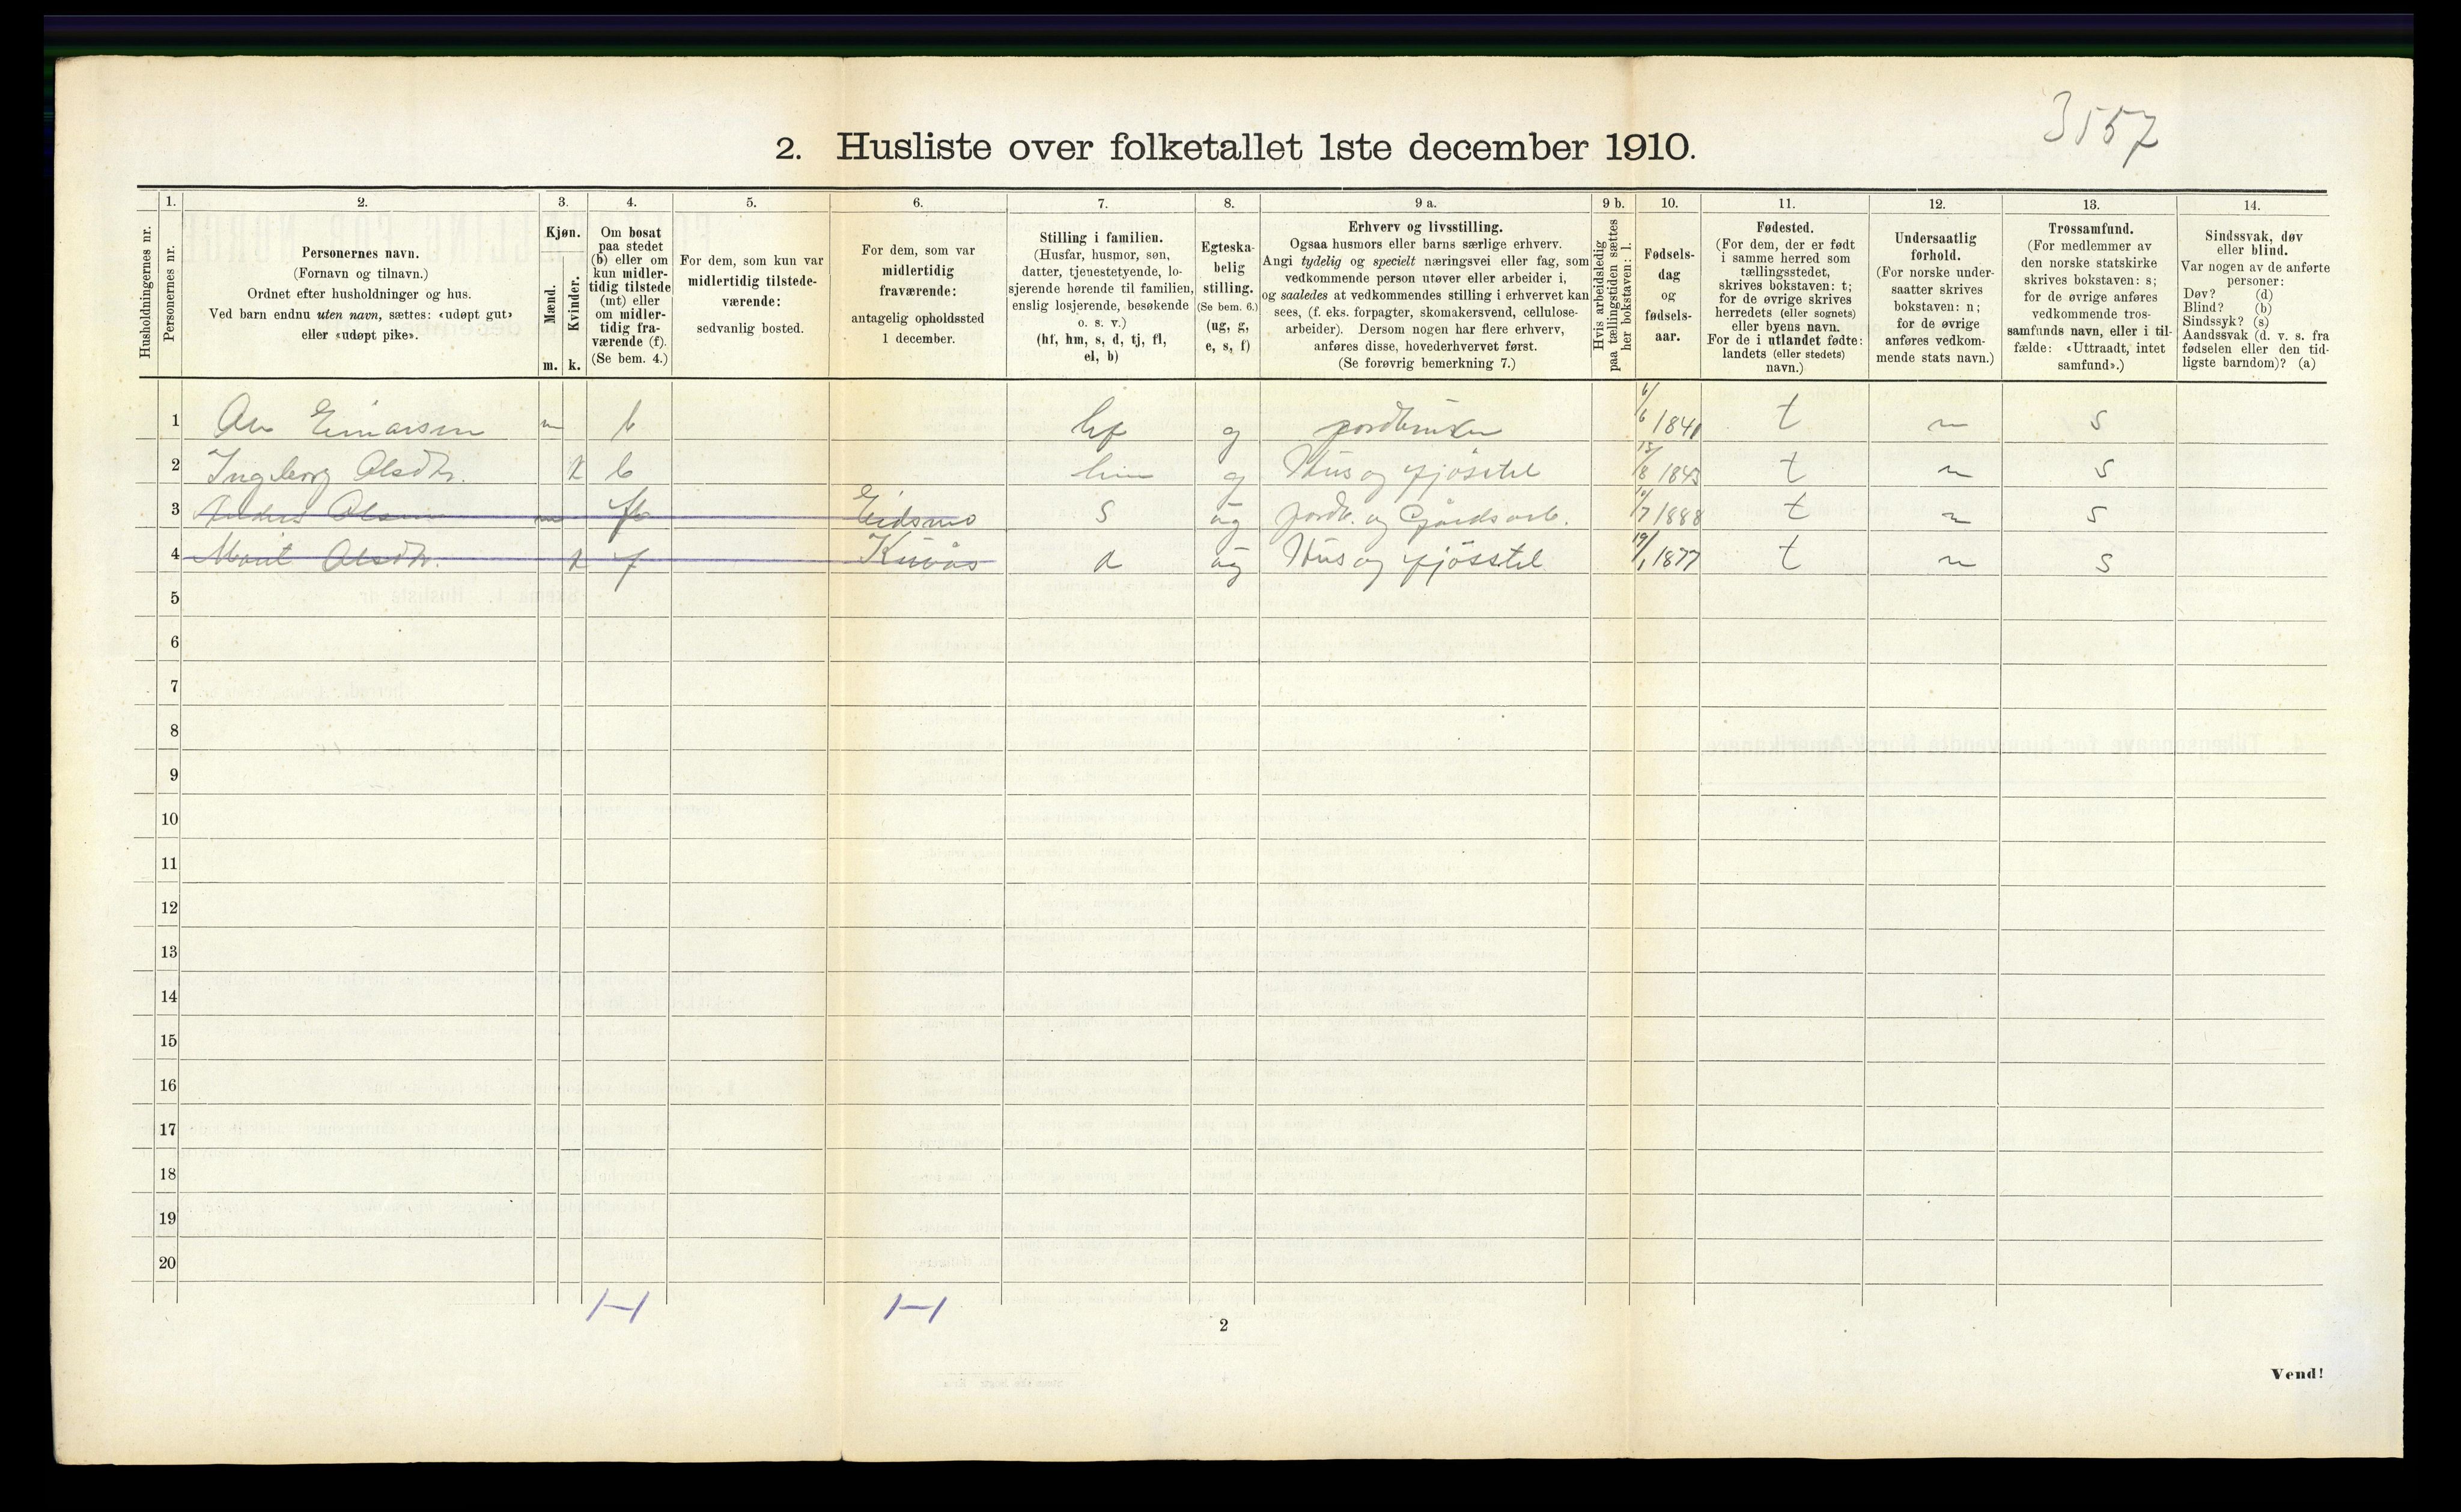 3557
2. Husliste over folketallet 1ste december 1910.
Husholdningernes nr.
1.
Personernes nr.
2.
Personernes navn.
(Fornavn og tilnavn.)
Ordnet efter husholdninger og hus.
Ved barn endnu uten navn, sættes: «udøpt gut»
eller «udøpt pike».
3.
Kjøn.
Mænd.
Kvinder.
m. k.
4.
Om bosat
paa stedet
(b) eller om
kun midler-
tidig tilstede
(mt) eller
om midler-
tidig fra-
værende (f).
(Se bem. 4.)
5.
For dem, som kun var
midlertidig tilstede-
værende:
sedvanlig bosted.
6.
For dem, som var
midlertidig
fraværende:
antagelig opholdssted
1 december.
7.
Stilling i familien.
(Husfar, husmor, søn,
datter, tjenestetyende, lo-
sjerende hørende til familien,
enslig losjerende, besøkende
o. s. v.)
(hf, hm, s, d, tj, fl,
el, b)
8.
Egteska-
belig
stilling.
(Se bem. 6.)
(ug, g,
e, s, f)
9 a.
Erhverv og livsstilling.
Ogsaa husmors eller barns særlige erhverv.
Angi tydelig og specielt næringsvei eller fag, som
vedkommende person utøver eller arbeider i,
og saaledes at vedkommendes stilling i erhvervet kan
sees, (f. eks. forpagter, skomakersvend, cellulose-
arbeider). Dersom nogen har flere erhverv,
anføres disse, hovederhvervet først.
(Se forøvrig bemerkning 7.)
9 b.
Hvis arbeidsledig
paa tællingstiden sættes
her bokstaven: l.
10.
Fødsels-
dag
og
fødsels-
aar.
11.
Fødested.
(For dem, der er født
i samme herred som
tællingsstedet,
skrives bokstaven: t;
for de øvrige skrives
herredets (eller sognets)
eller byens navn.
For de i utlandet fødte:
landets (eller stedets)
navn.)
12.
Undersaatlig
forhold.
(For norske under-
saatter skrives
bokstaven: n;
for de øvrige
anføres vedkom-
mende stats navn.)
13.
Trossamfund.
(For medlemmer av
den norske statskirke
skrives bokstaven: s;
for de øvrige anføres
vedkommende tros-
samfunds navn, eller i til-
fælde: «Uttraadt, intet
samfund».)
14.
Sindssvak, døv
eller blind.
Var nogen av de anførte
personer:
Døv? (d)
Blind? (b)
Sindssyk? (s)
Aandssvak (d. v. s. fra
fødselen eller den tid-
ligste barndom)? (a)
1 Einarsen m b hf g jordbruker 6/6 1841 t n s
2 Ingeborg Olsdtr. k b hm g Hus og fjösstel 15/8 1843 t n s
3 Anders Olsen m f Eidsmo s ug jordb. og Gårdsarb. 1888 t n s
4 Marit Olsdtr. k f d ug Hus og fjösstel 19/1 1877 t n s
5
6
7
8
9
10
11
12
13
14
15
16
17
18
19
20
1–1 1–1
2
Vend!